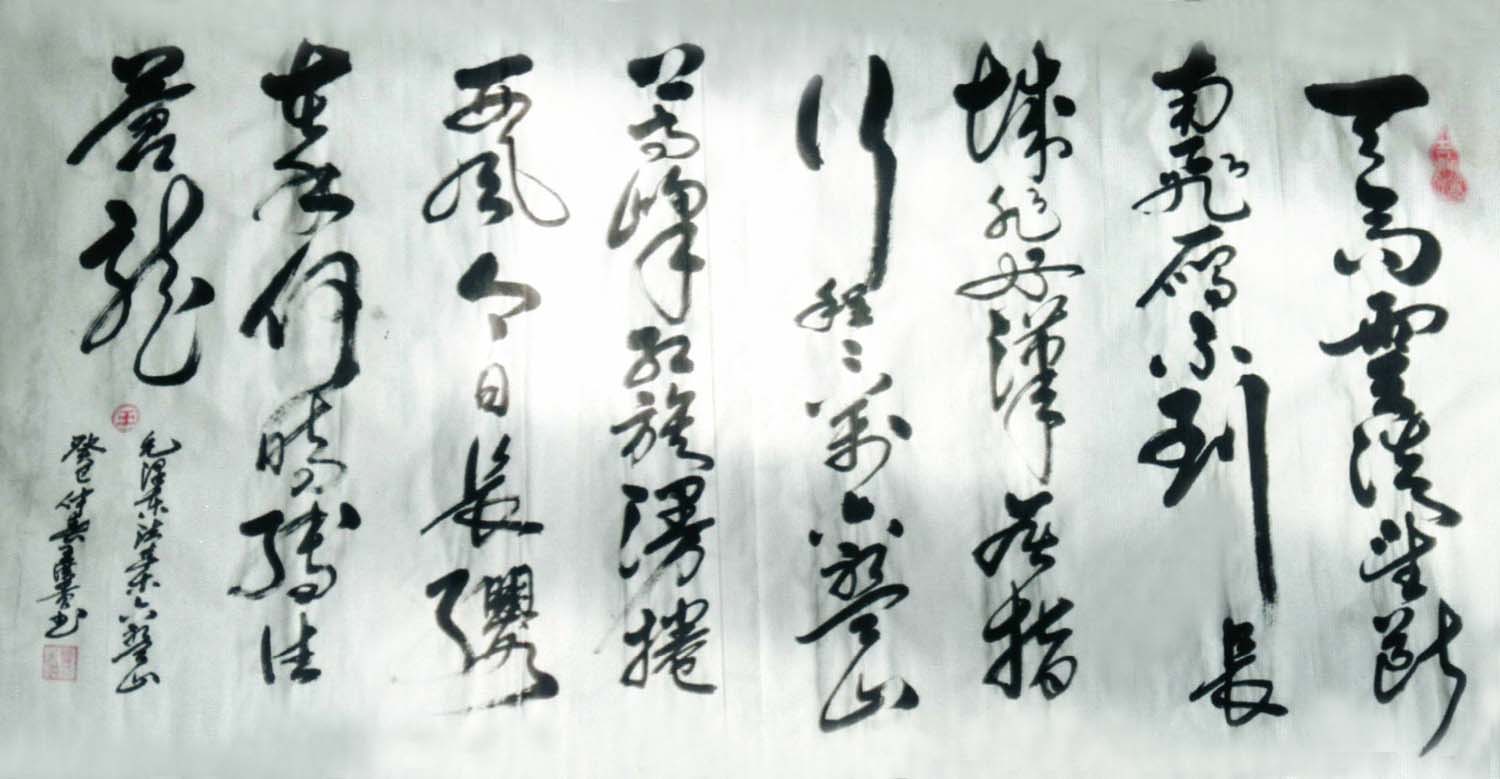 天高雲淡望斷
南飛雁不到長
城非好漢屈指
行程二萬六盤山
上高峰紅旗漫捲
西風今日長纓
在手何時縛住
蒼龍
王
毛澤東清平樂六盤山
癸巳仲春王書